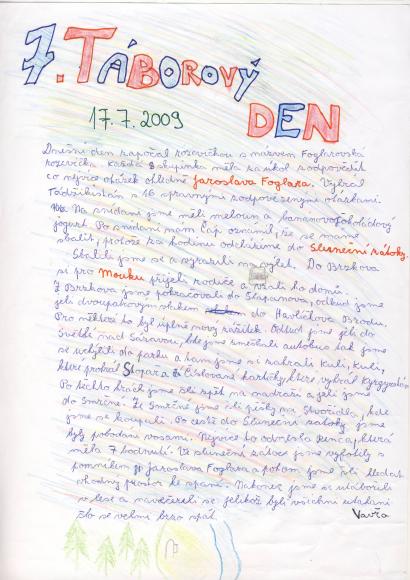 7. TÁBOROVÝ
DEN
17.7.2009
Dnešní den započal rozcvičkou s názvem Foglarovská
rozcvička. Každá skupinka měla za úkol zodpovědět
co nejvíce otázek ohledně Jaroslava Foglara. Vyhrál
Tádžikistán s 16 správnými zodpovězenými otázkami.
Na snídani jsme měli meloun a bananovočokoládový
jogurt. Po snídani nám Čáp oznámil, že se máme
sbalit, protože za hodinu odcházíme do Sluneční zátoky.
Sbalili jsme se a vyrazili na výlet. Do Brzkova
si pro Mouku přijeli rodiče a vzali ho domů.
Z Brzkova jsme pokračovali do Šlapanova, odtud jsme
jeli dvoupatrovým vlakem do Havlíčkova Brodu.
Pro některé to byl úplně nový zážitek. Odtud jsme jeli do
Světlé nad Sázavou, kde jsme zmeškali autobus tak jsme
se uchýlili do parku a tam jsme si zahráli Kuli, Kuli,
které prohrál a číslované kartičky, které vyhrál Kyrgyzstán
Po těchto hrách jsme šli zpět na nádraží a jeli jsme
do Smrčné. Ze Smrčné jsme šli pěšky na Stvořidla, kde
jsme se koupali. Po cestě do Sluneční zátoky jsme
byly pobodáni vosami. Nejvíce to odnesla Jenca, která
měla 7 bodnutí. Ve sluneční zátoce jsme vyfotily s
pomníkem p. Jaroslava Foglara a potom jsme šli hledat
vhodný prostor ke spaní. Nakonec jsme se utábořili
v lese a navečeřeli se jelikož byli všichni utahaní
šlo se velmi brzo spát.
Vavřa